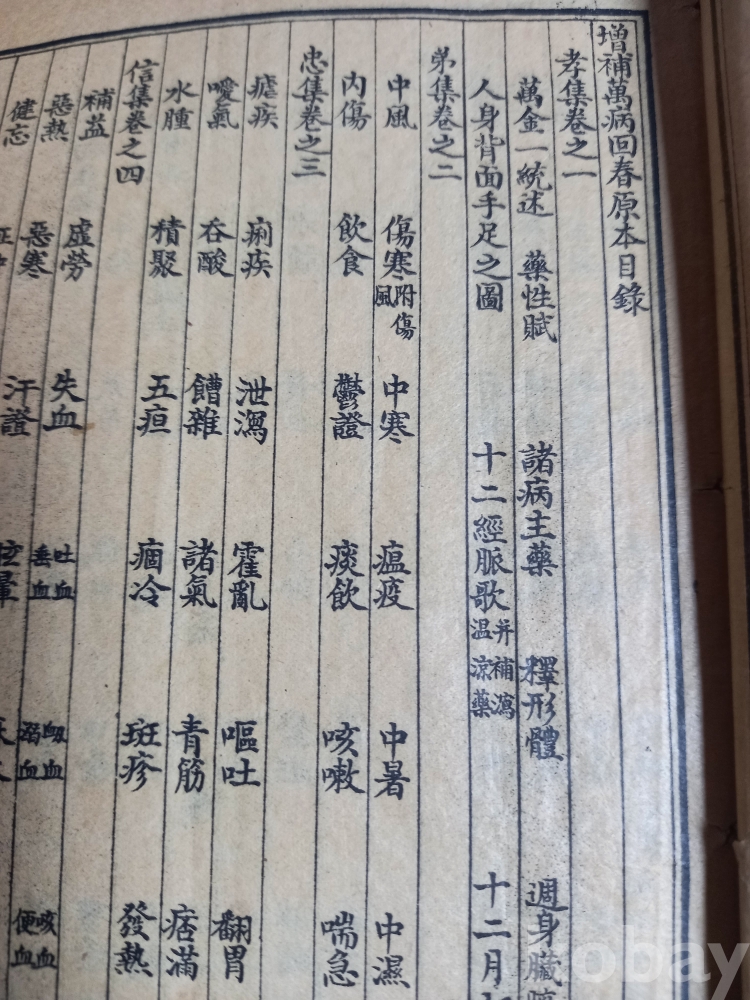 增補萬病回春原本目錄
孝集卷之一
萬金一統述 藥性賦 諸病主藥 釋形體 週身臟
人身背面手足之圖 十二經脈歌 并補瀉溫涼藥 十二月
弟集卷之二
中風 傷寒 附傷風 中寒 瘟疫 中暑 中濕
內傷 飲食 鬱證 痰飲 咳嗽 喘急
忠集卷之三
瘧疾 痢疾 泄瀉 霍亂 嘔吐 翻胃
噯氣 吞酸 饋雜 諸氣 青筋 痞滿
水腫 積聚 五疸 痼冷 斑疹 發熱
信集卷之四
補益 虛勞 失血 吐血 衄血 咳血 便血
惡熱 惡寒 汗證
健忘
obay